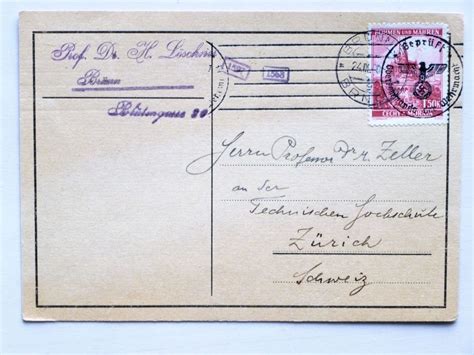 Prof. Dr. H. Löschner
Brünn
Blütengasse 20
1568
BÖHMEN UND MÄHREN
ČECHY A MORAVA
1.50K
BRNO
Geprüft
Oberkommando der Wehrmacht
Herrn Professor Dr. M. Zeller
an der
Technischen Hochschule
Zürich
Schweiz